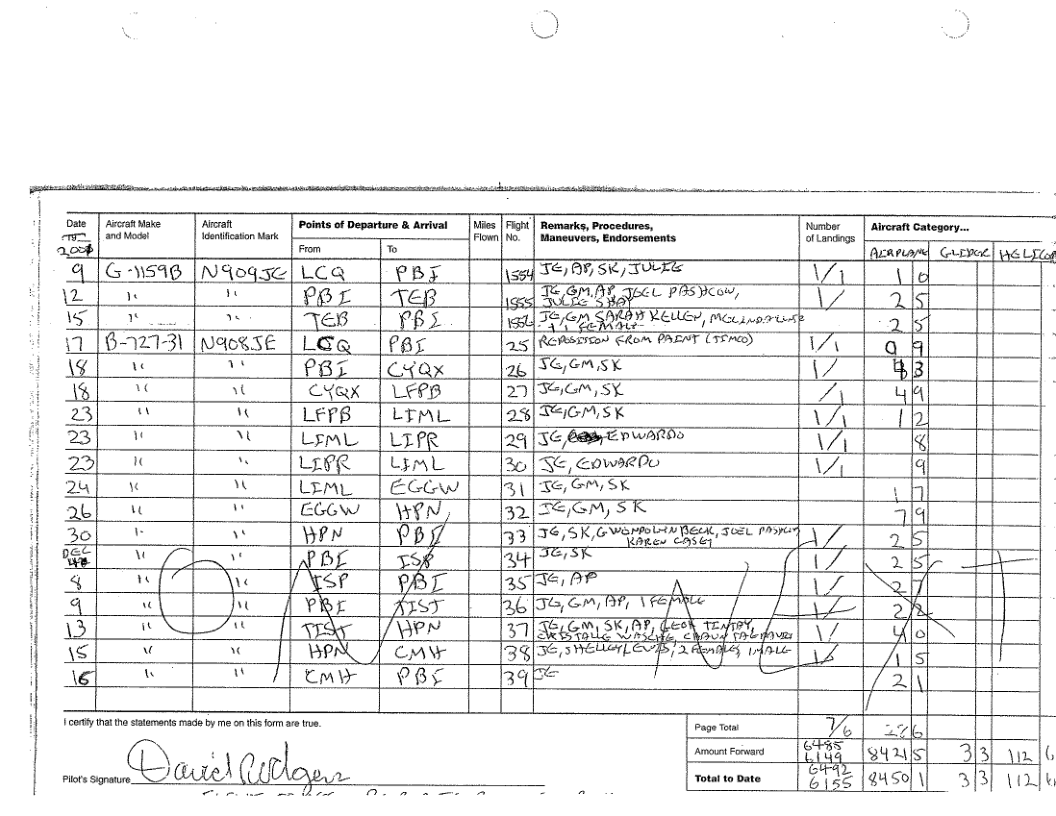 Date 2001 Aircraft Make and Model Aircraft Identification Mark Points of Departure & Arrival From To Miles Flown Flight No. Remarks, Procedures, Maneuvers, Endorsements Number of Landings Aircraft Category... AIRPLANE GLIDER HELICOP
9 G-1159B N909JE LCQ PBI 1554 JE, AP, SK, JULIE 1/1 1 0
12 " " PBI TEB 1555 JE, GM, AP, JOEL PASHCOW, JULIE SHAY 1/ 2 5
15 " " TEB PBI 1556 JE, GM SARAH KELLEN, + 1 FEMALE 2 5
17 B-727-31 N908JE LCQ PBI 25 REPOSITION FROM PAINT (TIMCO) 1/1 0 9
18 " " PBI CYQX 26 JE, GM, SK 1/ 3
18 " " CYQX LFPB 27 JE, GM, SK /1 4 9
23 " " LFPB LIML 28 JE, GM, SK 1/1 1 2
23 " " LIML LIPR 29 JE, EDWARDO 1/1 8
23 " " LIPR LIML 30 JE, EDWARDO 1/1 9
24 " " LIML EGGW 31 JE, GM, SK 1 7
26 " " EGGW HPN 32 JE, GM, SK 7 9
30 " " HPN PBI 33 JE, SK, GWENDOLYN BECK, JOEL PASHCOW KAREN CASEY 1/ 2 5
DEC " " PBI ISP 34 JE, SK 1/ 2 5
8 " " ISP PBI 35 JE, AP 1/ 2 7
9 " " PBI TIST 36 JE, GM, AP, 1 FEMALE 1/ 2 8
13 " " TIST HPN 37 JE, GM, SK, AP, 1/ 4 0
15 " " HPN CMH 38 JE, SHELLEY LEWIS, 2 FEMALES 1 MALE 1 5
16 " " CMH PBI 39 JE 2 1
I certify that the statements made by me on this form are true.
Page Total 7/6
Amount Forward 6485 6149 8421 5 3 3 112
Pilot's Signature David Rodgers
Total to Date 6492 6155 8450 1 3 3 112